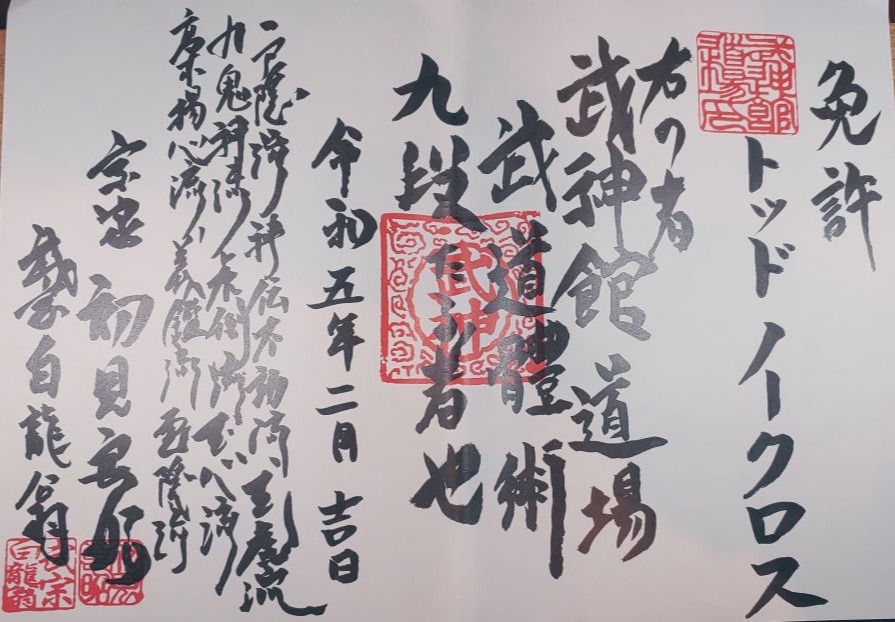 免許
トッド ノークロス
右の者
武神館道場
武道體術
九段たる者也
令和五年二月吉日
戸隠流 神伝不動流 玉虎流
九鬼神流 虎倒流 玉心流
高木揚心流 義鑑流 雲隠流
宗家 初見良昭
白龍翁